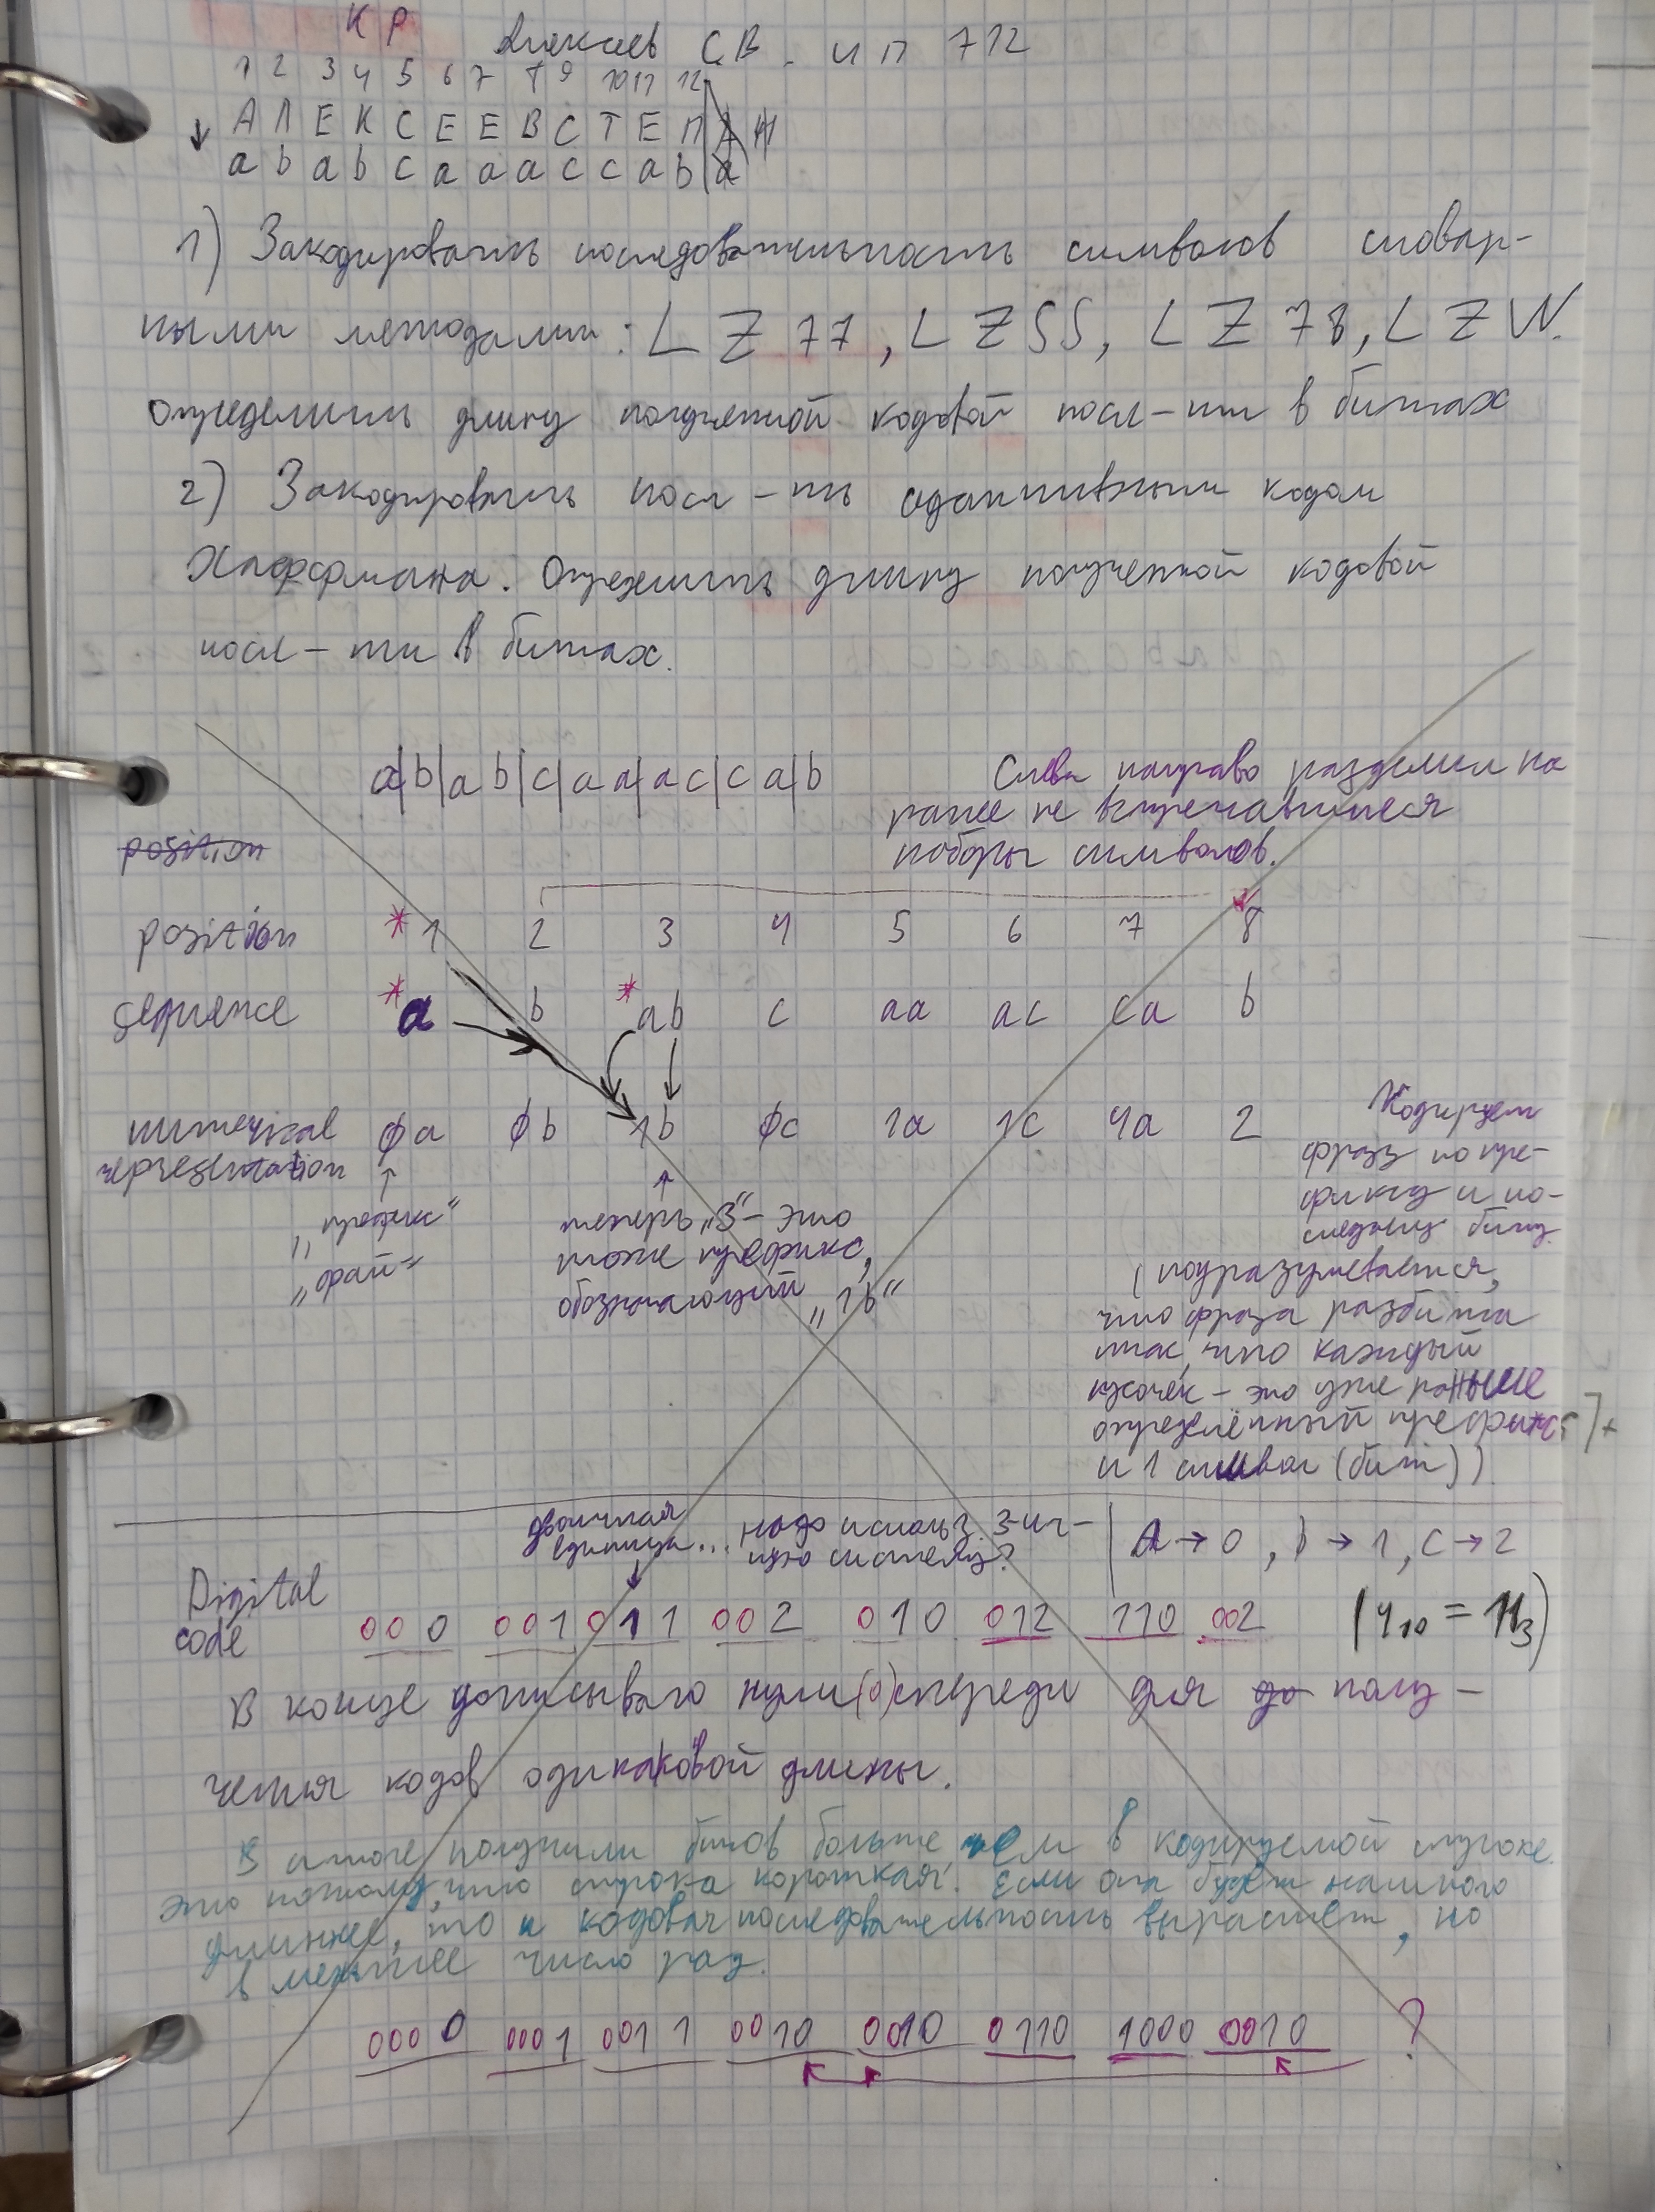 К Р
Алексеев С.В. ИП 712
1 2 3 4 5 6 7 8 9 10 11 12
↓ А Л Е К С Е Е В С Т Е П А Н
a b a b c a a a c c a b a
1) Закодировать последовательность символов словар-
ными методами: LZ77, LZSS, LZ78, LZW.
Определить длину полученной кодовой посл-ти в битах
2) Закодировать посл-ть адаптивным кодом
Хаффмана. Определить длину полученной кодовой
посл-ти в битах.
a|b|a b|c|a a|a c|c a|b
Слева направо разделил на
ранее не встречавшиеся
наборы символов.
position
position * 1 2 3 4 5 6 7 8
sequence * a b * ab c aa ac ca b
numerical representation ϕa ϕb 1b ϕc 1a 1c 4a 2
↑ „префикс“
„фай“
↑ теперь „3“ - это
тоже префикс,
обозначающий „1b“
Кодируем
фразу по пре-
фиксу и по-
следнему биту.
(подразумевается,
что фраза разбита
так, что каждый
кусочек - это уже раньше
определённый префикс
и 1 символ (бит))
двоичная
единица... надо использ. 3-ич-
ную систему?
A → 0, b → 1, C → 2
Digital
code 000 001 011 002 010 012 110 002 (4₁₀ = 11₃)
В конце дописываю нули(0) спереди для до полу-
чения кодов одинаковой длины.
В итоге получили битов больше чем в кодируемой строке.
Это потому, что строка короткая. Если она будет намного
длиннее, то и кодовая последовательность вырастет, но
в меньшее число раз.
0000 0001 0011 0010 0010 0110 1000 0010 ?